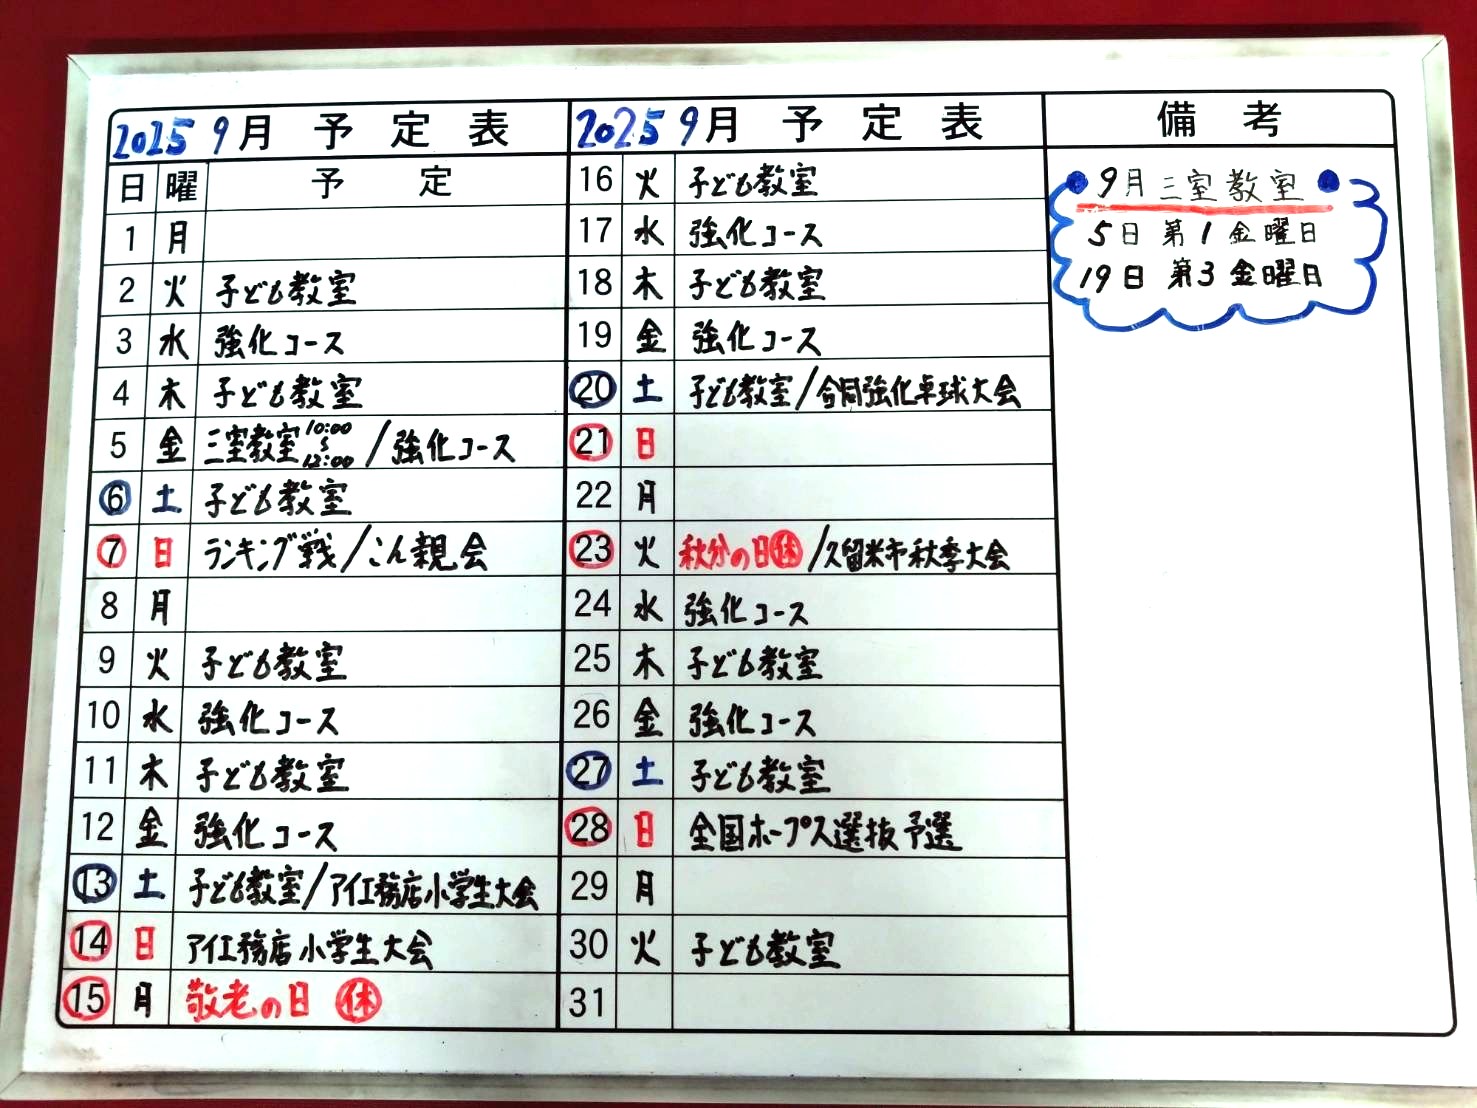 2025 9月 予定表
日 曜 予定
1 月
2 火 子ども教室
3 水 強化コース
4 木 子ども教室
5 金 三室教室 10:00〜12:00 / 強化コース
6 土 子ども教室
7 日 ランキング戦/こん親会
8 月
9 火 子ども教室
10 水 強化コース
11 木 子ども教室
12 金 強化コース
13 土 子ども教室/アイ工務店小学生大会
14 日 アイ工務店小学生大会
15 月 敬老の日 休
2025 9月 予定表
16 火 子ども教室
17 水 強化コース
18 木 子ども教室
19 金 強化コース
20 土 子ども教室/合同強化卓球大会
21 日
22 月
23 火 秋分の日休/久留米市秋季大会
24 水 強化コース
25 木 子ども教室
26 金 強化コース
27 土 子ども教室
28 日 全国ホープス選抜予選
29 月
30 火 子ども教室
31
備考
9月三室教室
5日 第1金曜日
19日 第3金曜日